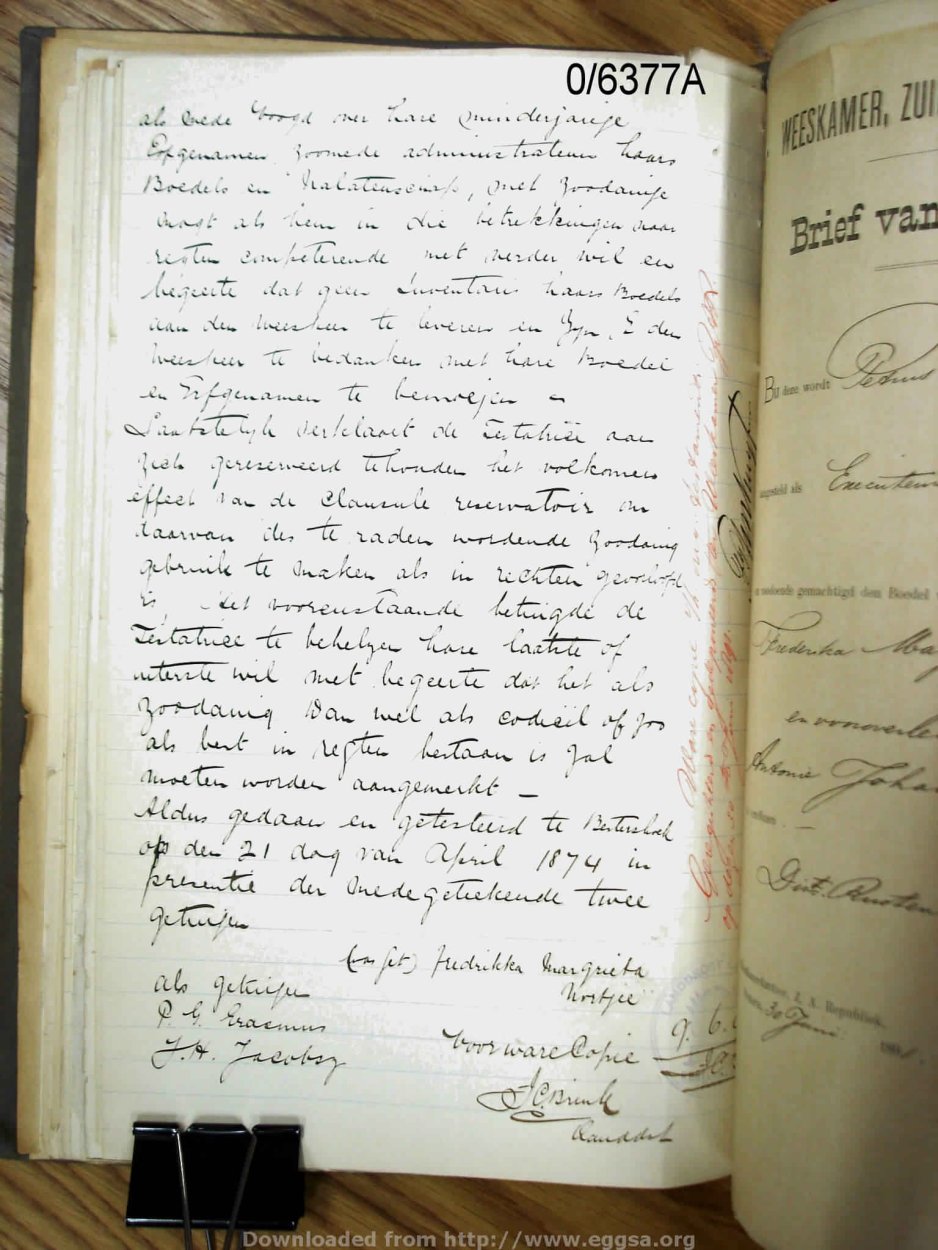 0/6377A
als mede Voogd over hare minderjarige
Erfgenamen, zoomede administrateur haars
Boedels en Nalatenschap, met zoodanige
magt als hem in die betrekkingen naar
regten competerende met verder wil en
begeerte dat geen Inventaris haars Boedels
aan den Weesheer te leveren en Zyn E den
Weesheer te bedanken met hare Boedel
en Erfgenamen te bemoejen =
Laatstelyk verklaart de Testatrice aan
Zich gereserveerd te houden het volkomen
effect van de Clausule reservatoir om
daarvan des te raden wordende zoodanig
gebruik te maken als in rechten geoorloofd
is, Het voorenstaande betuigde de
Testatrice te behelzen hare laatste of
uiterste wil met begeerte dat het als
zoodanig dan wel als codicil of zoo
als best in regten bestaan is zal
moeten worden aangemerkt —
Aldus gedaan en getesteerd te Bestershoek
op den 21 dag van April 1874 in
presentie der medegetekende twee
getuigen
(was get) Fredrikka Margrieta
als getuigen
P. G. Erasmus
J. H. Jacobsz
Voor ware Copie
J C Brink
Ware copie
WEESKAMER, ZUI
Brief van
Bij deze wordt Petrus
aangesteld als Executeur
gemachtigd den Boedel
Frederika Ma
en vooroverle
Antonie Joha
Dist. Rusten
Z. A. Republiek,
30 Juni
Downloaded from http://www.eggsa.org